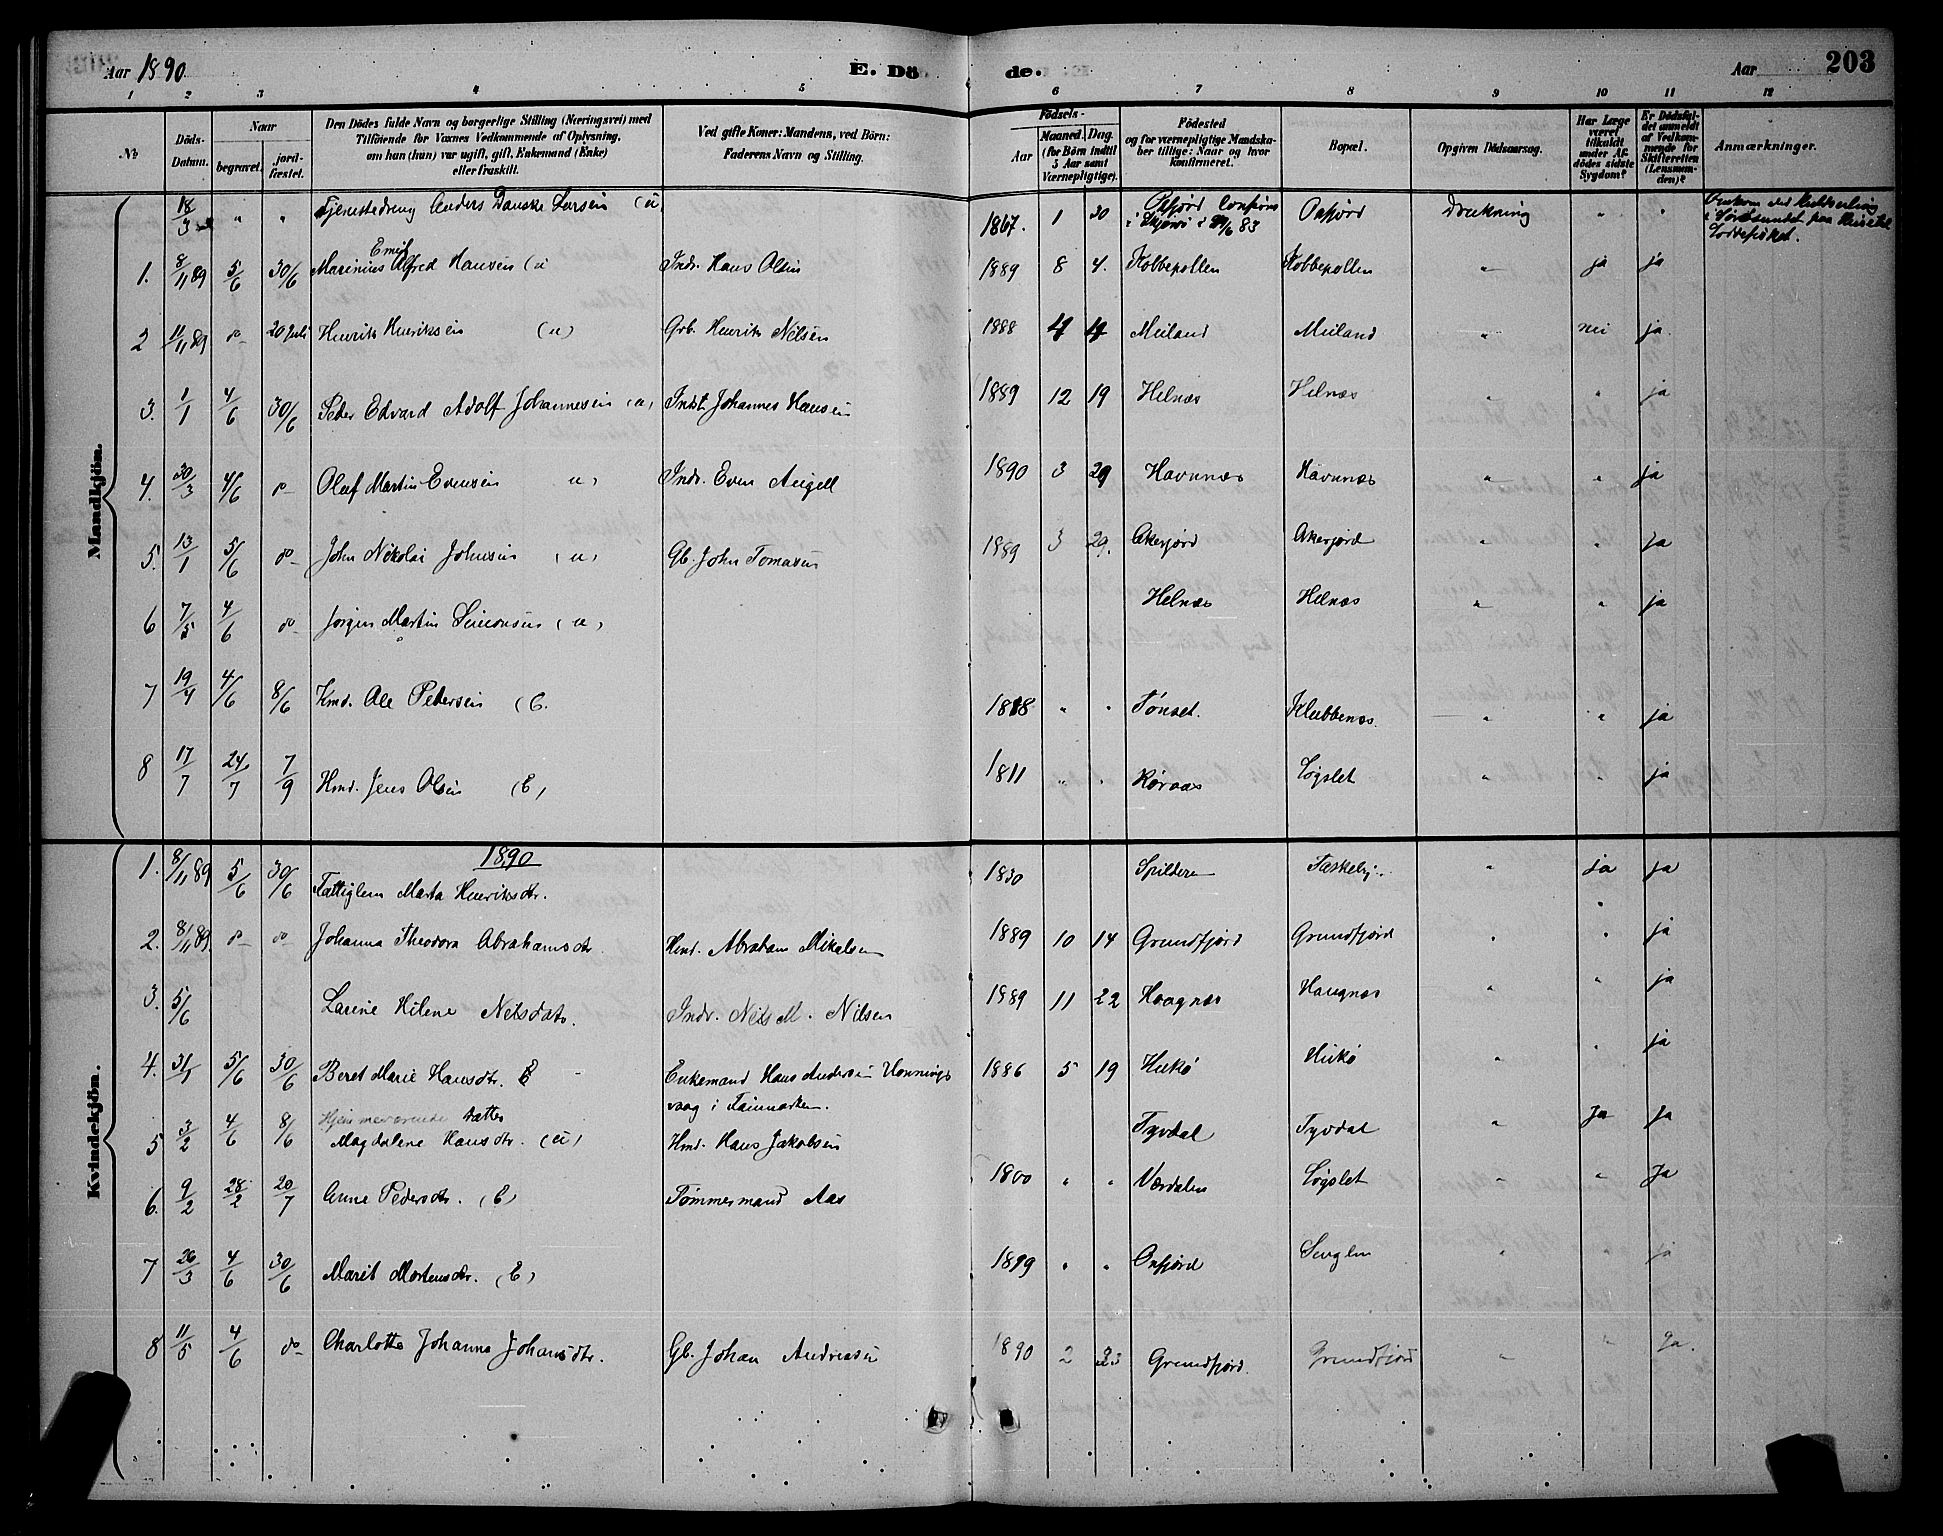 Aar 1890 E. Dö de. Aar 203
1 2 3 4 5 6 7 8 9 10 11 12
No Döds-Datum. Naar begravet. jord-fæstet. Den Dödes fulde Navn og borgerlige Stilling (Næringsvei) med Tilföiende for Voxnes Vedkommende af Oplysning, om han (hun) var ugift, gift, Enkemand (Enke) eller fraskilt. Ved gifte Koner: Mandens, ved Börn: Faderens Navn og Stilling. Födsels- Aar Maaned. Dag. (for Börn indtil 5 Aar samt Værnepligtige). Födested og for værnepligtige Mandska-ber tillige: Naar og hvor konfirmeret. Bopæl. Opgiven Dödsaarsag. Har Læge været tilkaldt under Af-dödes sidste Sygdom? Er Dödsfal-det anmeldt af Vedkom-mende for Skifteretten (Lensman-den)? Anmærkninger.
Mandkjön.
18/3 " " Tjenestedreng Anders Danske Larsen (u) 1867. 1 20 i Skjervö i 83 Oxfjord Drukning " "
1. 8/11 89 5/6 30/6 Marinius Emil Alfred Hansen (u Indr. Hans Olsen 1889 8 4. Kobbepollen Kobbepollen " ja ja
2 11/11 89 do 20 Juli Henrik Henriksen (u) Grb. Henrik Nilsen 1888 4 4 Meiland Meiland " nei ja
3. 1/1 4/6 30/6 Peder Edvard Adolf Johannesen (u) Indst. Johannes Hansen 1889 12 19 Helnæs Helnæs " " ja
4. 30/3 4/6 do Oluf Martin Evensen u) Indr. Even Angell 1890 3 29 Havnnæs Havnnæs " " ja
5. 13/1 5/6 do John Nikolai Johnsen (u) Gb. John Tomasen 1889 3 29. Akerfjord Akerfjord " " ja
6 7/5 4/6 do Jørgen Martin Simonsen (u) Helnæs Helnæs " " ja
7 19/4 4/6 8/6 Kmd. Ole Pedersen (E. 1818 " " Tønset. Klubbenæs. " " ja
8 17/7 24/7 7/9 Hmd. Jens Olsen (E) 1811 " " Røraas Løgslet " " ja
Kvindekjön.
1890
1. 8/11 89 5/6 30/6 Fattiglem Marta Henriksdtr. 1830 Spilderen " ja ja
2. 8/11 89. do do Johanna Theodora Abrahamsdtr Hmd. Abraham Mikalsen 1889 10 14 Grundfjord Grundfjord " " ja
3. 5/6 Larine Helene Nilsdatr. Indr. Nils M. Nilsen 1889 11 22 Haugnæs Haugnæs " " ja
4. 31/1 5/6 30/6 Beret Marie Hansdtr. Enkemand Hans Andersen Honnings-vaag i Finmarken. 1886 5 19 Hukø Hukø " " ja
5 3/2 4/6 8/6 Hjemmeværende Datter Magdalene Hansdtr. (u) Hmd. Hans Jakobsen Tyvdal Tyvdal " Ja ja
6. 9/2 28/2 20/7 Anne Pedersdtr. (E) Tømmermand Aas 1800 " " Værdalen Løgslet " " Ja
7 26/3 4/6 30/6 Marit Mortensdtr. (E) 1819 " " Oxfjord " " ja
8 11/5 4/6 do Charlotte Johanna Johansdtr. Gb. Johan Andreasen 1890 2 23 Grundfjord. Grundfjord " " ja.